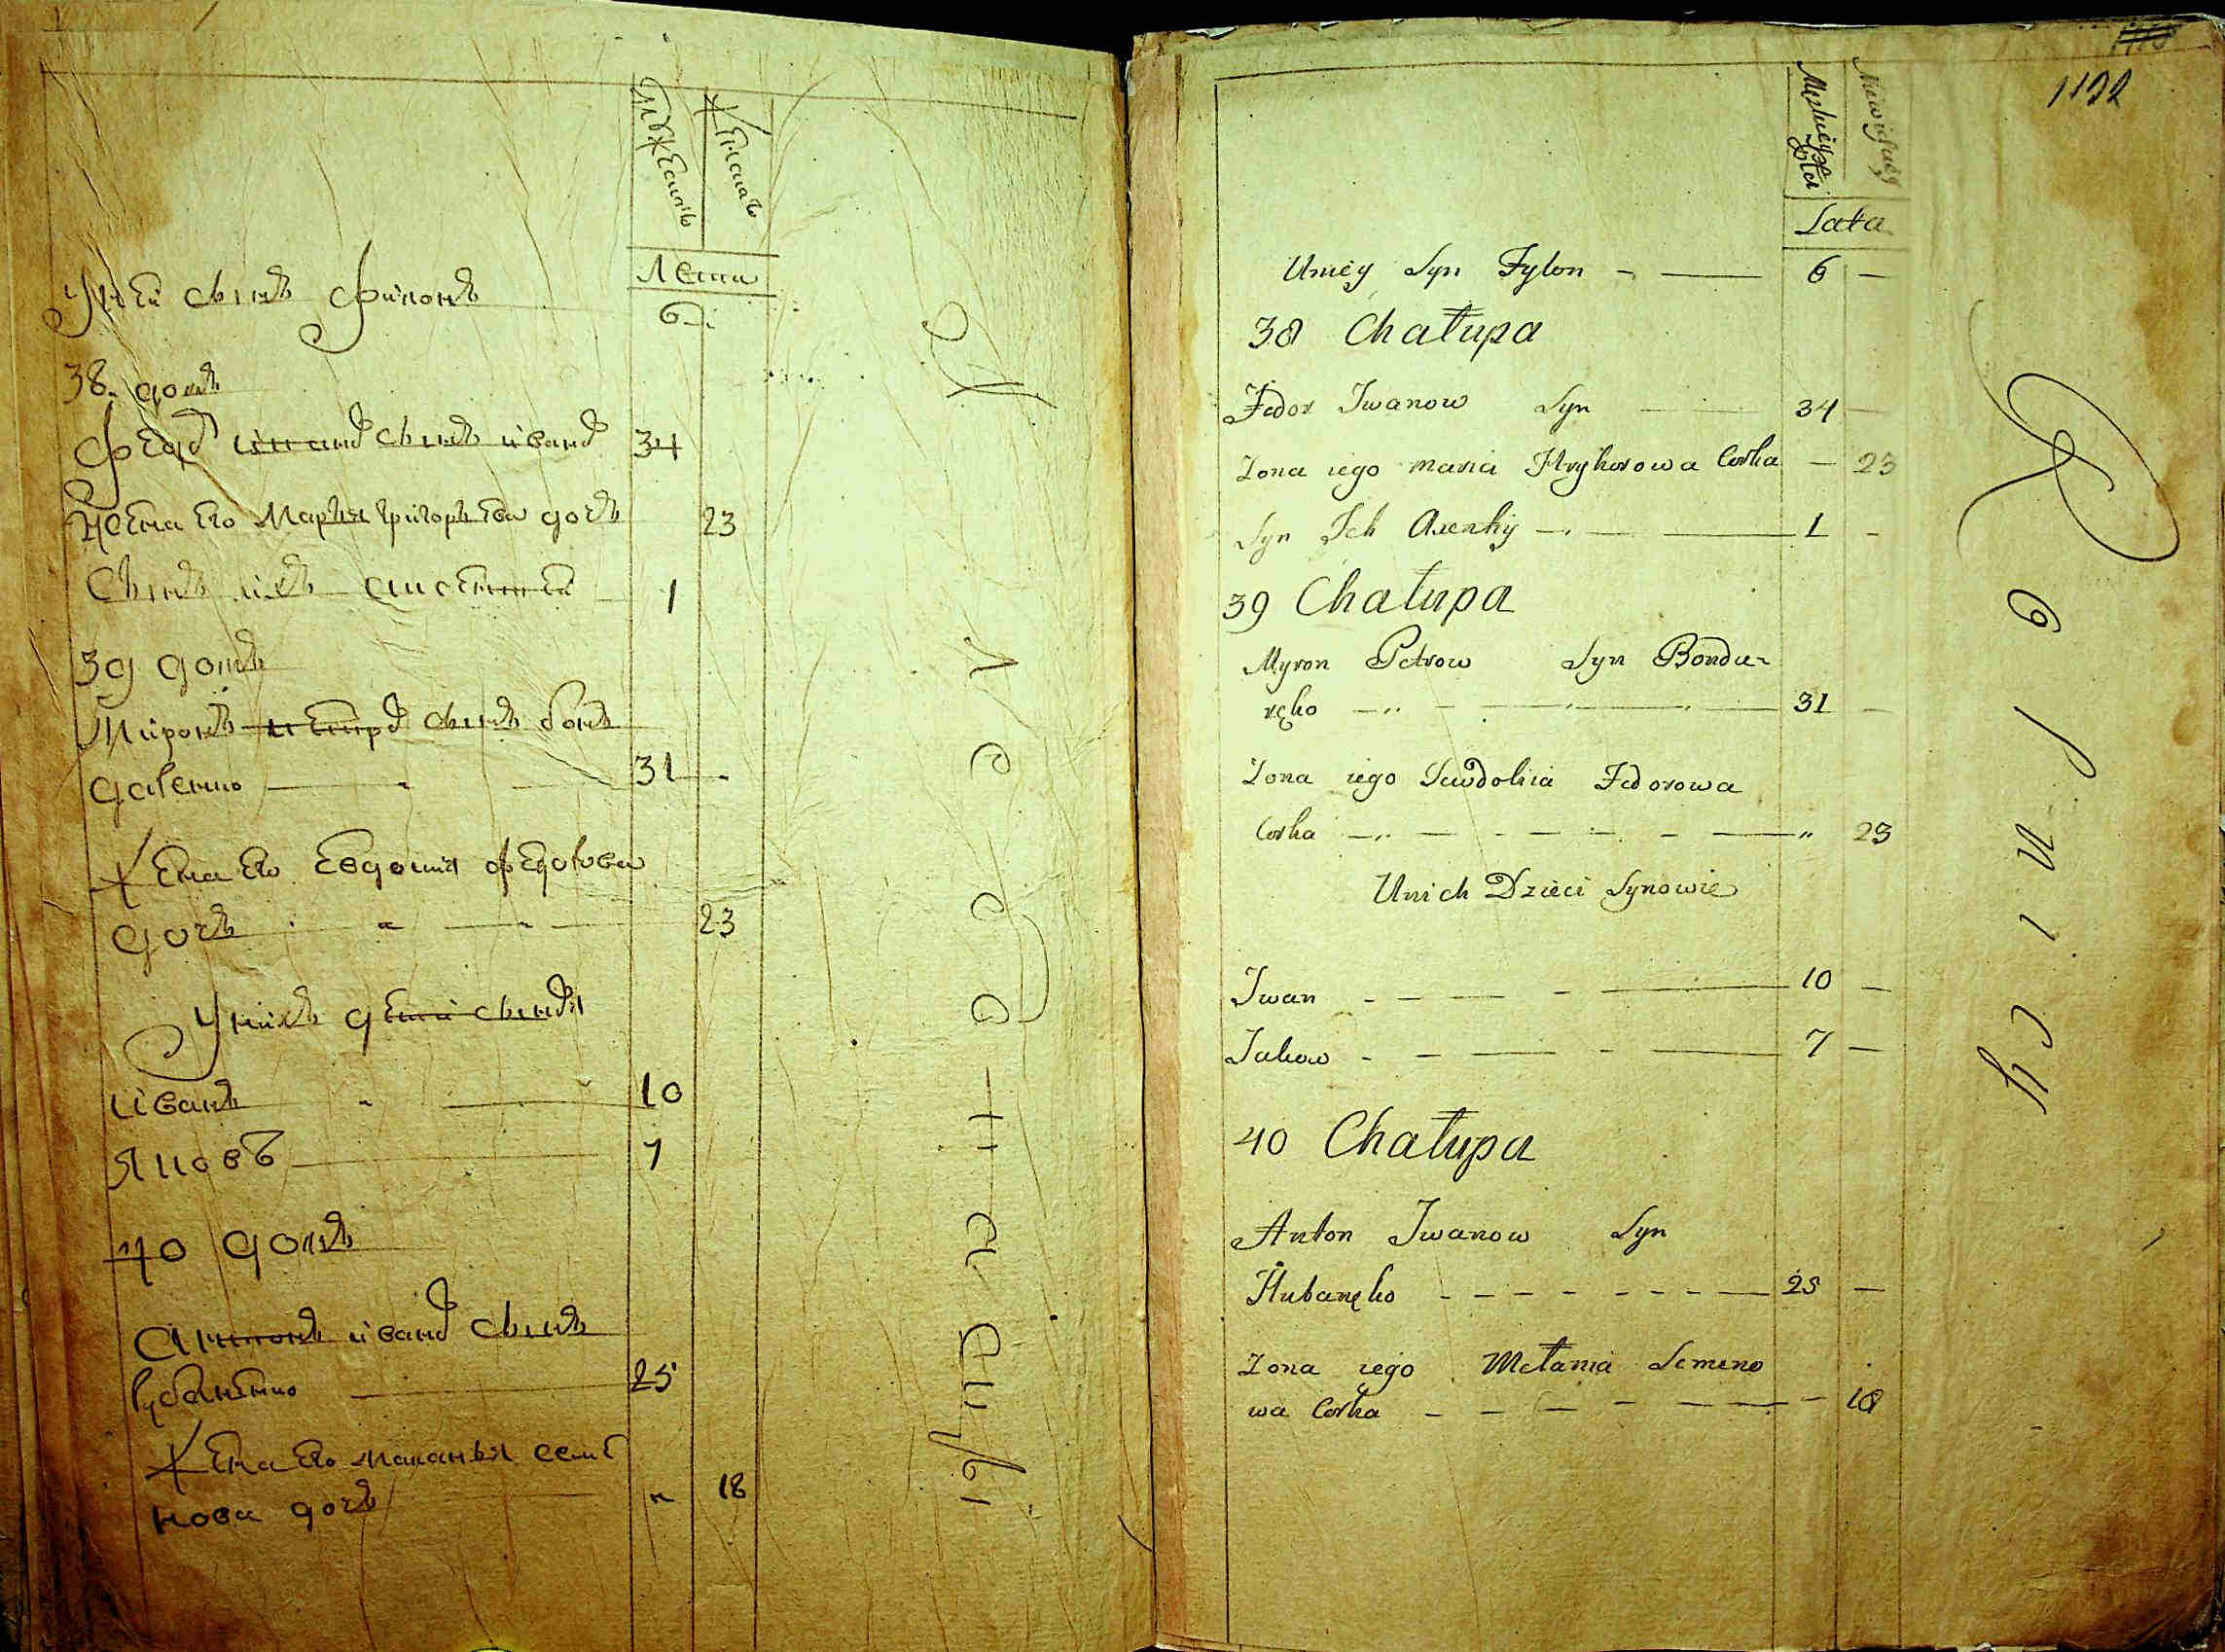 Мужескъ
Женскъ
Лета
У ней сынъ Филонъ
6
38. домъ
Федоръ Ивановъ сынъ
34
Жена его Марья Григорьева дочь
23
Сынъ ихъ
1
39 домъ
Миронъ Петровъ сынъ Бон
даренко
31
Жена его Евдокия Федорова
дочь
23
У нихъ дети сыновья
Иванъ
10
Яковъ
7
40 домъ
Антонъ Ивановъ сынъ
Губаненко
25
Жена его Маланья Семе
нова дочь
18
1122
Męzkiey Płci
Lata
Uniey Syn Fylon 6
38 Chałupa
Fedor Iwanow Syn 34
Zona iego maria Hryhorowa Corka 23
Syn Ich Axenkiy 1
39 Chałupa
Myron Petrow Syn Bonda
ręko 31
Zona iego Fedorowa
Corka 23
Unich Dzieci Synowie
Iwan 10
Iakow 7
40 Chałupa
Anton Iwanow Syn
Hubanęko 25
Zona iego Mełania Semeno
wa Corka 18